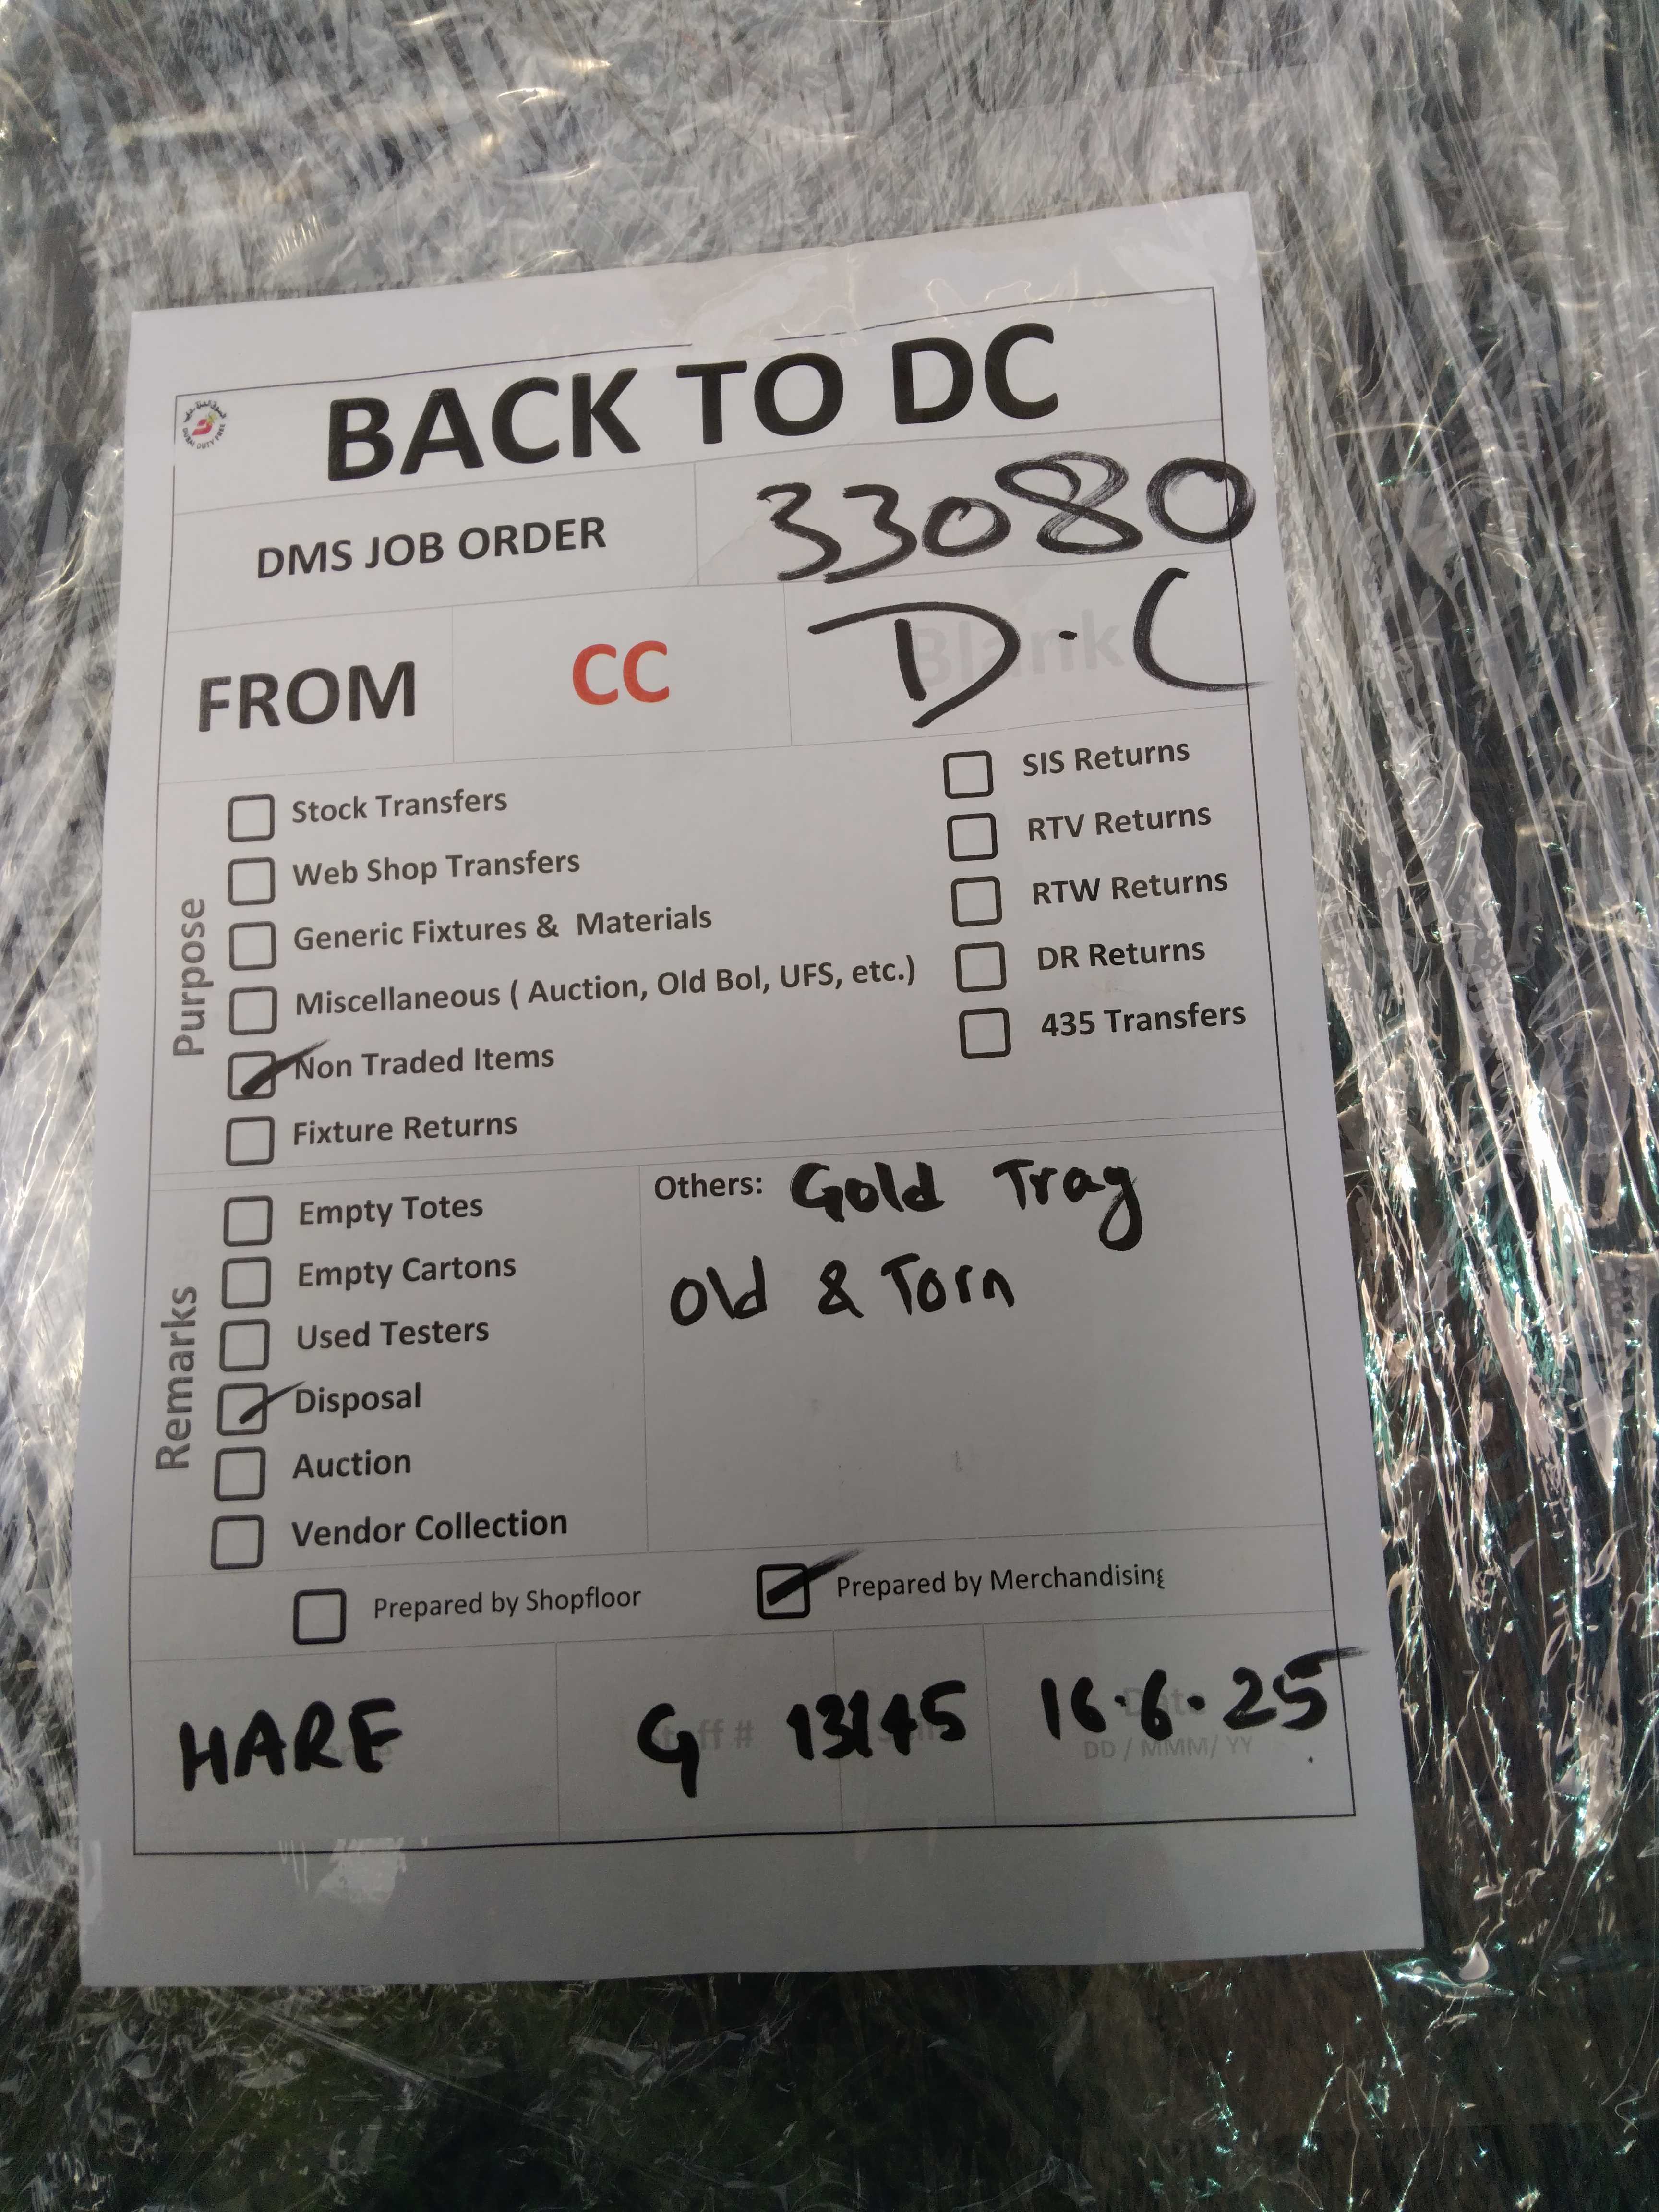 BACK TO DC
DUBAI DUTY FREE
DMS JOB ORDER 33080
FROM CC Blank D.C
Purpose
Stock Transfers
Web Shop Transfers
Generic Fixtures & Materials
Miscellaneous ( Auction, Old Bol, UFS, etc.)
Non Traded Items
Fixture Returns
SIS Returns
RTV Returns
RTW Returns
DR Returns
435 Transfers
Remarks
Empty Totes
Empty Cartons
Used Testers
Disposal
Auction
Vendor Collection
Others: Gold Tray
Old & Torn
Prepared by Shopfloor Prepared by Merchandising
G 16.6.25
DD / MMM/ YY